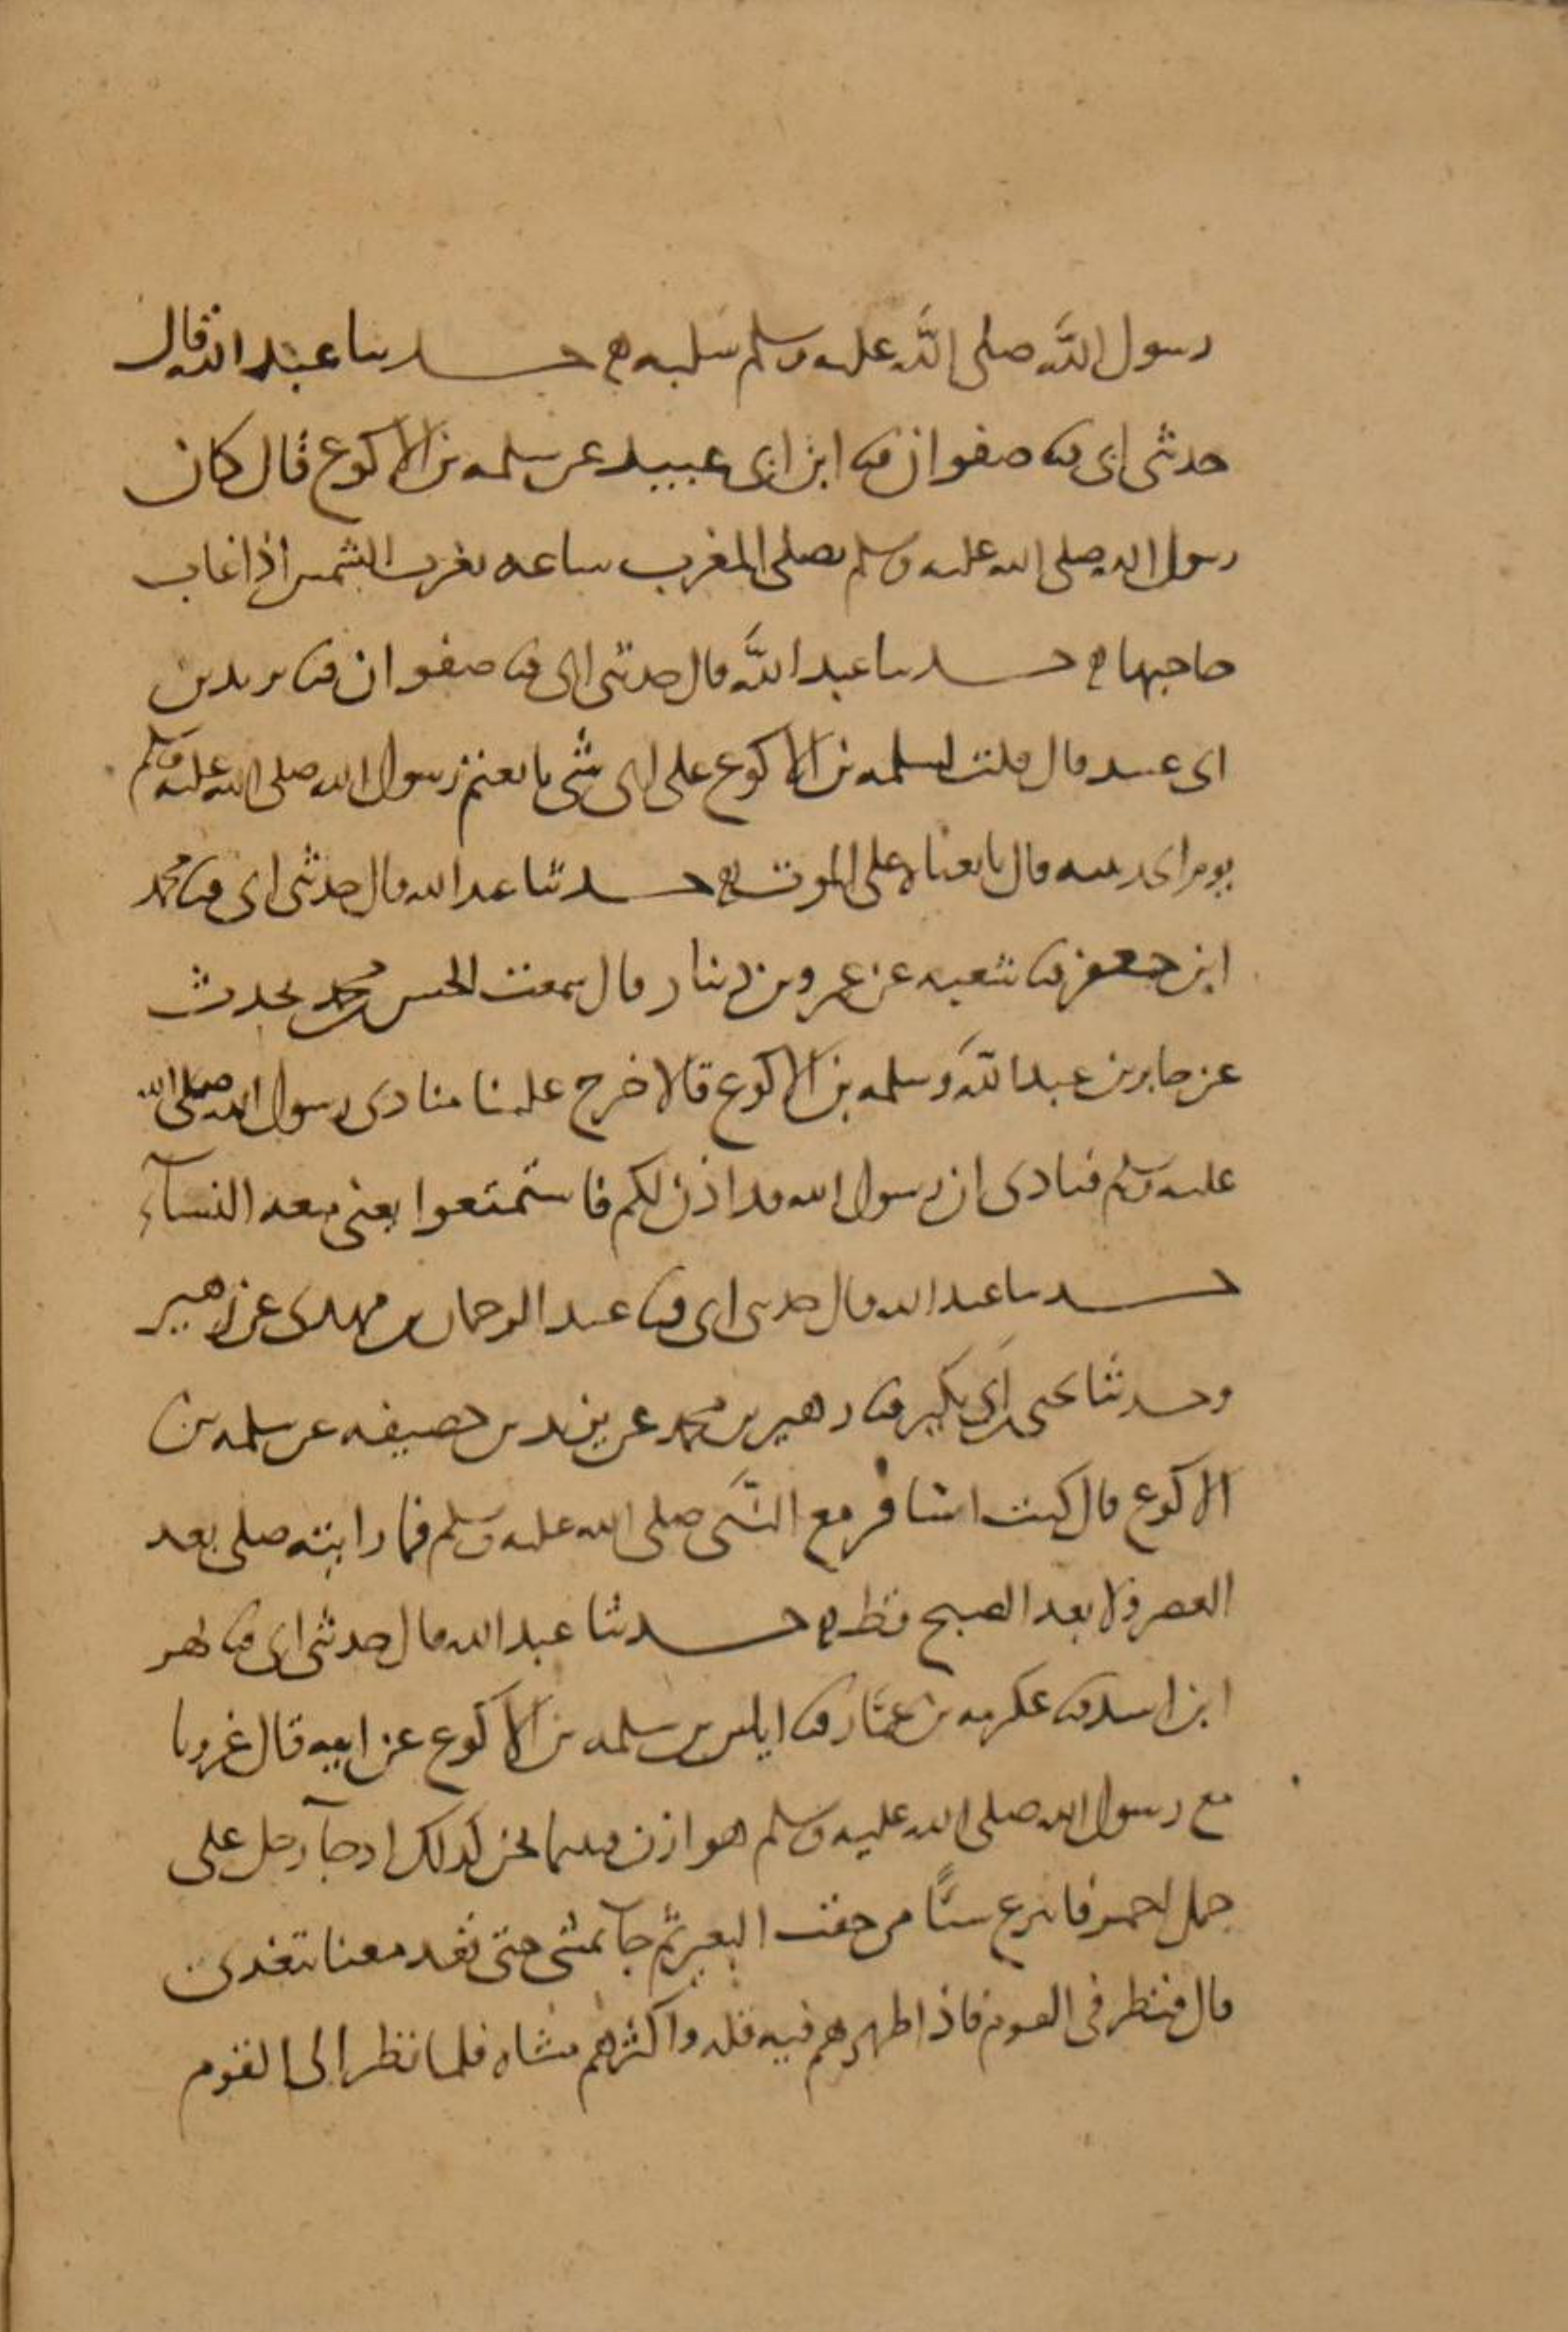 رسول الله صلى الله عليه وسلم سلبه ه حدثنا عبد الله قال
حدثنى ابى ثنا صفوان ثنا ابن ابى عبيد عن سلمه بن الاكوع قال كان
رسول الله صلى الله عليه وسلم يصلى المغرب ساعه تغرب الشمس اذا غاب
حاجبها ه حدثنا عبد الله قال حدثنى ابى ثنا صفوان ثنا يزيد بن
ابى عبيد قال قلت لسلمه بن الاكوع على اى شى بايعتم رسول الله صلى الله عليه وسلم
يوم الحديبيه قال بايعناه على الموت ه حدثنا عبد الله قال حدثنى ابى ثنا محمد
ابن جعفر ثنا شعبه عن عمرو بن دينار قال سمعت الحسن بن محمد يحدث
عن جابر بن عبد الله وسلمه بن الاكوع قالا خرج علينا منادى رسول الله صلى الله
عليه وسلم فنادى ان رسول الله قد اذن لكم فاستمتعوا يعنى متعه النسآء
حدثنا عبد الله قال حدثنى ابى ثنا عبد الرحمان بن مهدى عن زهير
وحدثنا يحيى بن ابى بكير ثنا زهير بن محمد عن يزيد بن خصيفه عن سلمه بن
الاكوع قال كنت اسافر مع النبى صلى الله عليه وسلم فما رايته صلى بعد
العصر ولا بعد الصبح قط ه حدثنا عبد الله قال حدثنى ابى ثنا بهز
ابن اسد ثنا عكرمه بن عمار ثنا اياس بن سلمه بن الاكوع عن ابيه قال غزونا
مع رسول الله صلى الله عليه وسلم هوازن فبينما نحن كذلك اذ جآ رجل على
جمل احمر فانتزع شيًا من حقب البعير ثم جآ يمشى حتى قعد معنا يتغدى
قال فنظر فى القوم فاذا ظهرهم فيه قله واكثرهم مشاه فلما نظر الى القوم